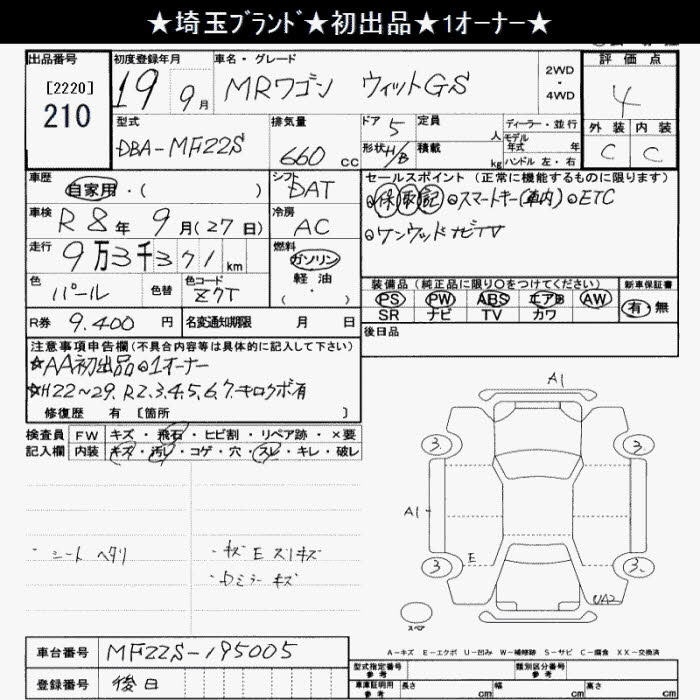 ★埼玉ﾌﾞﾗﾝﾄﾞ★初出品★1オーナー★
出品番号 初度登録年月 車名・グレード 評価点
[2220] 19 9月 MRワゴン ウィットGS 2WD・4WD 4
210
型式 排気量 ドア 5 定員 人 ディーラー・並行 外装 内装
DBA-MF22S 660cc 形状 H/B 積載 kg モデル年式 年 ハンドル 左・右 C C
車歴 自家用・( ) シフト DAT セールスポイント (正常に機能するものに限ります)
保 取 記 スマートキー(車内) ETC
車検 R8年 9月(27日) 冷房 AC
ケンウッドナビTV
走行 9万3千371km 燃料 ガソリン 軽油 (・)
色 パール 色替 色コード Z7T
装備品(純正品に限り○をつけてください) 新車保証書
PS PW ABS エアB AW 有・無
SR ナビ TV カワ
R券 9.400円 名変通知期限 月 日
後日品
注意事項申告欄(不具合内容等は具体的に記入して下さい)
☆AA初出品 1オーナー
☆H22~29.R2.3.4.5.6.7.キロクボ有
修復歴 有 [箇所 ]
検査員 FW キズ・飛石・ヒビ割・リペア跡・×要
記入欄 内装 キズ・汚レ・コゲ・穴・スレ・キレ・破レ
A1
3 3
A1
3 E 3
UA2
スペア
・シート ヘタリ
・キズ E スリキズ
・Dミラー キズ
A-キズ E-エクボ U-凹み W-補修跡 S-サビ C-腐食 XX-交換済
車台番号 MF22S-195005
登録番号 後日
型式指定番号 参考 類別区分番号 参考
車庫証明用 参考 長さ cm 幅 cm 高さ cm